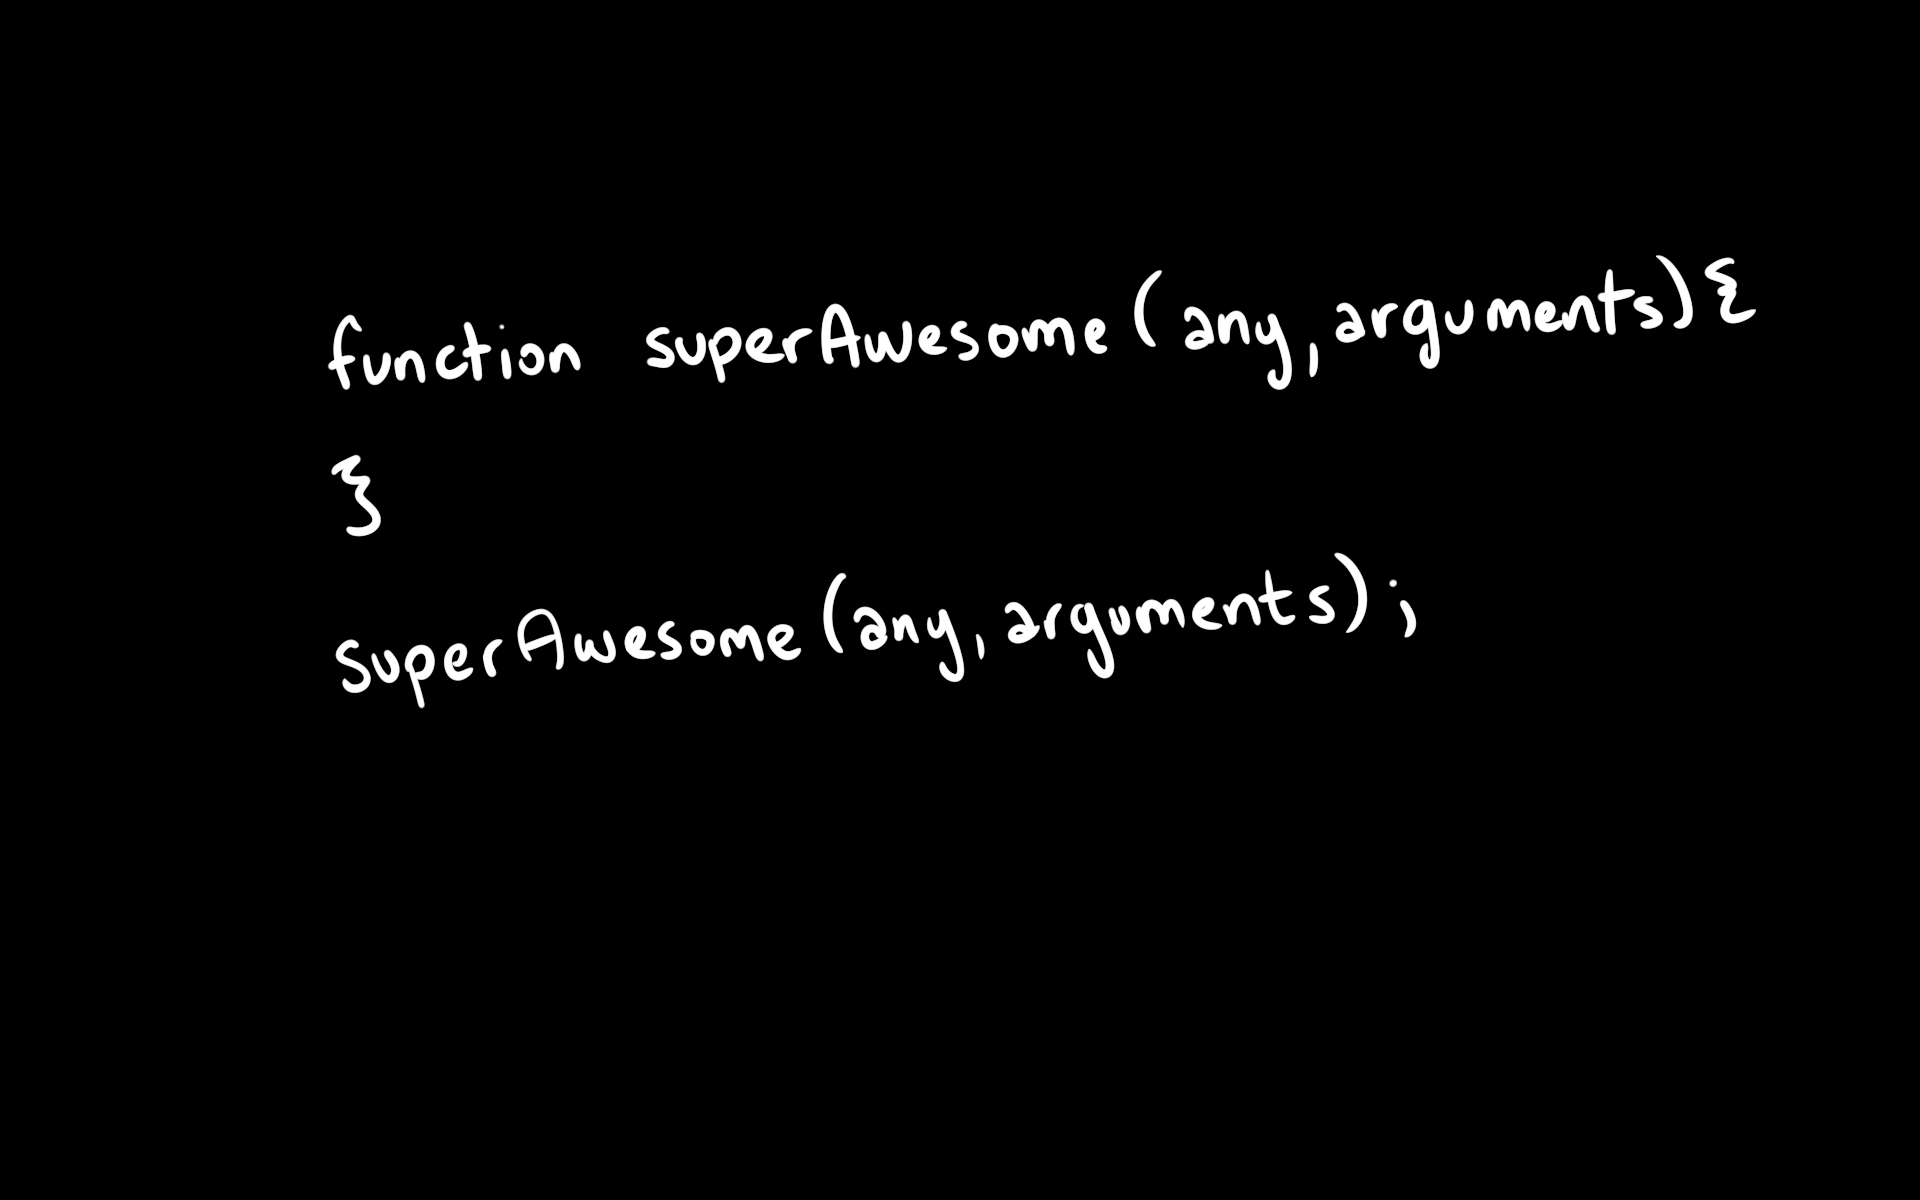 function superAwesome (any, arguments) {
}
superAwesome (any, arguments) ;